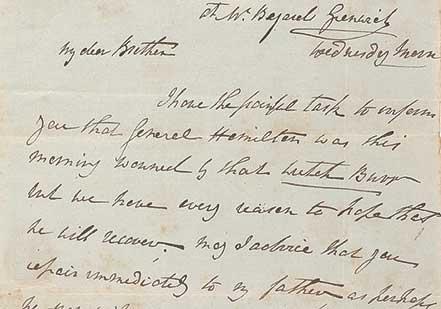 at Mr. Bayard Greenwich
Wednesday Morn
My dear Brother
I have the painful task to inform
you that General Hamilton was this
morning wounded by that wretch Burr
but we have every reason to hope that
he will recover. May I advice that you
repair immediately to my father, as perhaps